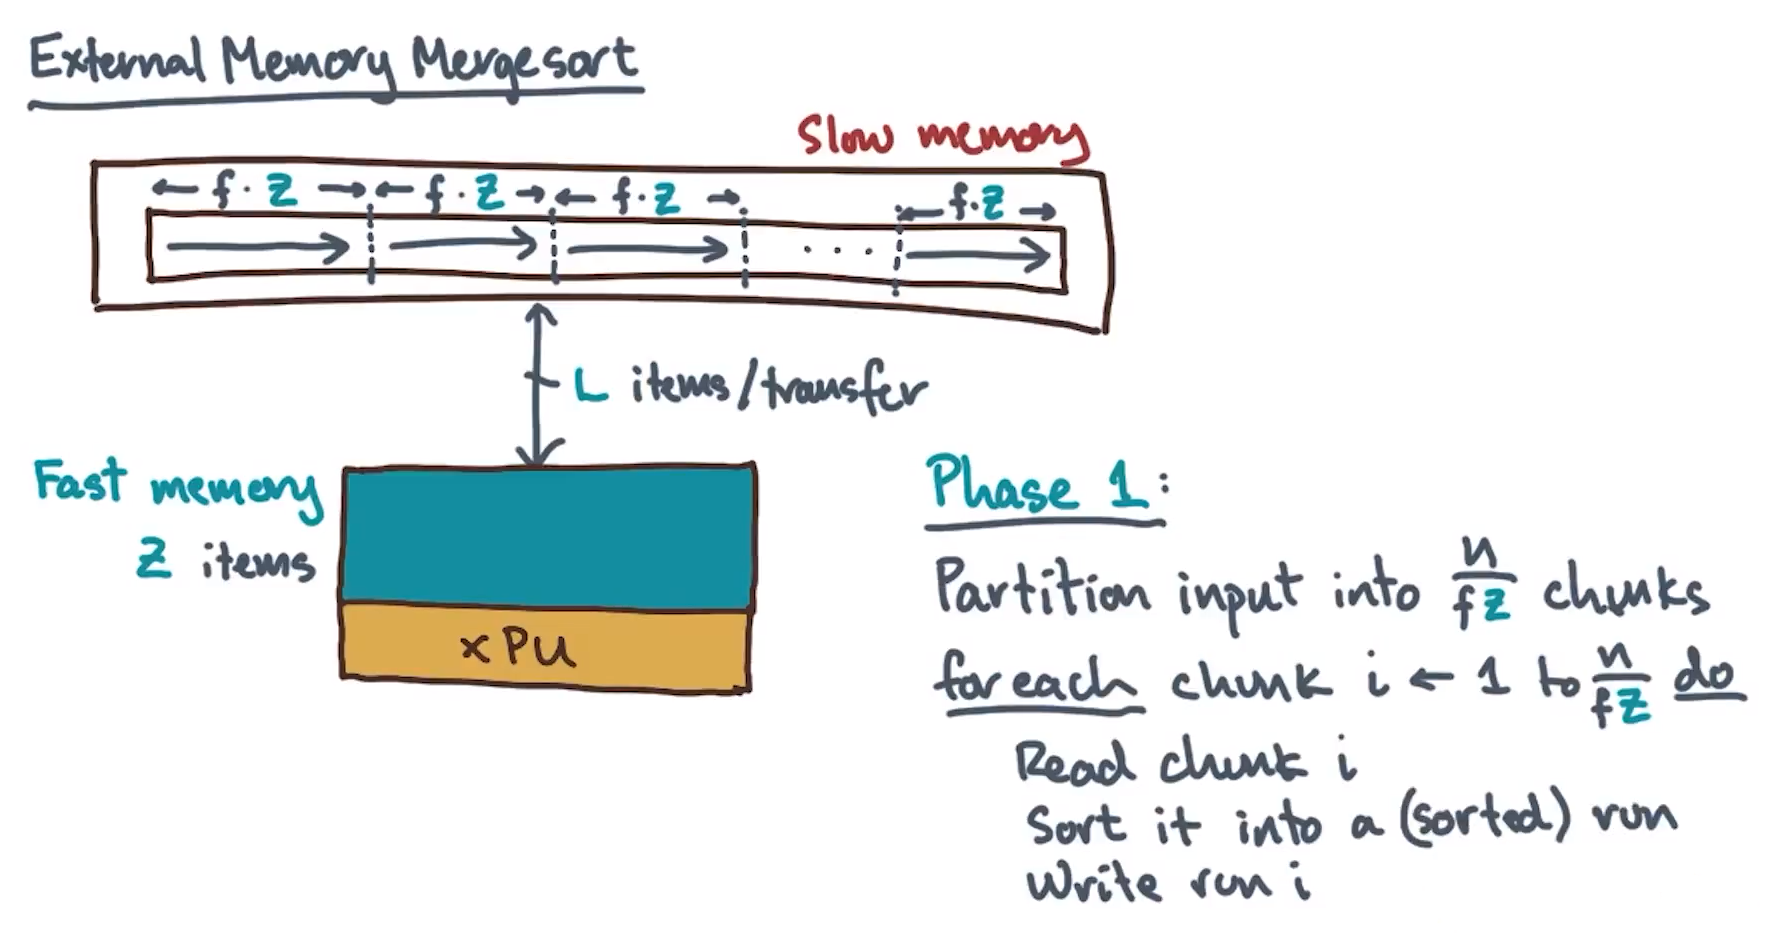 External Memory Mergesort
Slow memory
← f · Z → ← f · Z → ← f · Z → ← f · Z →
. . .
L items/transfer
Fast memory
Z items
xPU
Phase 1:
Partition input into n/fZ chunks
foreach chunk i ← 1 to n/fZ do
Read chunk i
Sort it into a (sorted) run
Write run i